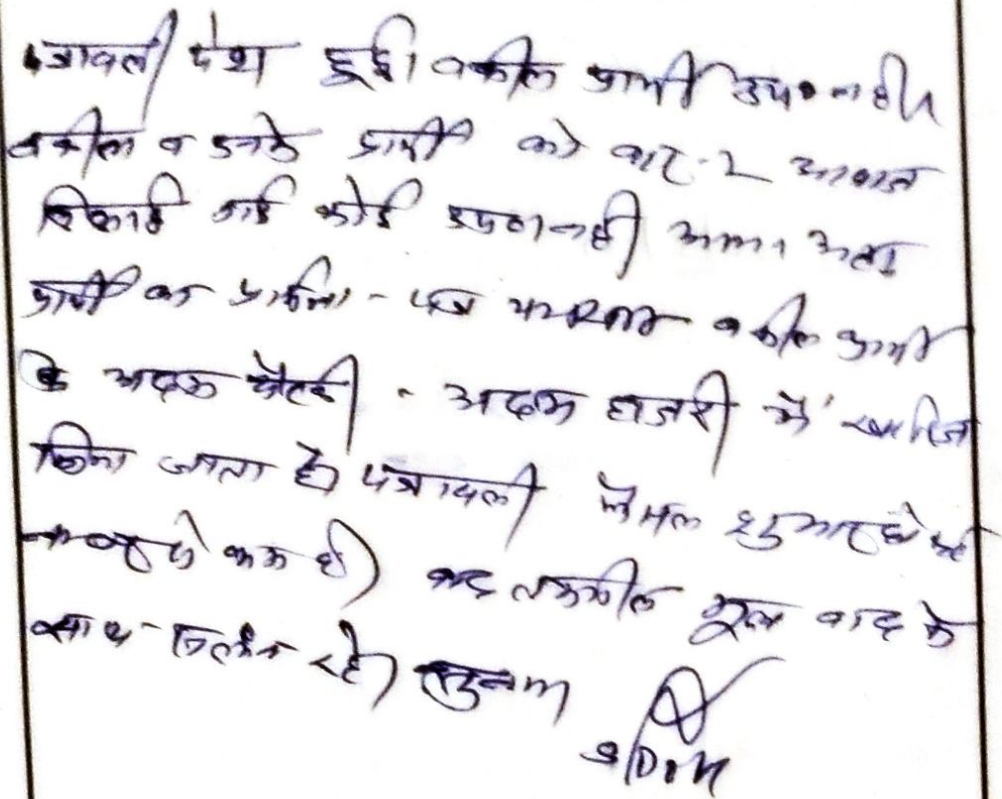 पत्रावली पेश हुई। वकील प्रार्थी उप० नहीं।
वकील व उनके प्रार्थी को बार-2 आवाज
दिलाई गई कोई उप० नहीं आया। अतः
प्रार्थी का प्रार्थना-पत्र वकील प्रार्थी
के अदम पैरवी - अदम हाजरी में खारिज
किया जाता है। पत्रावली फैसल शुमार होकर
नम्बर से कम हो। बाद तकमील मूल वाद के
साथ संलग्न रहे। सुनाया
SDM